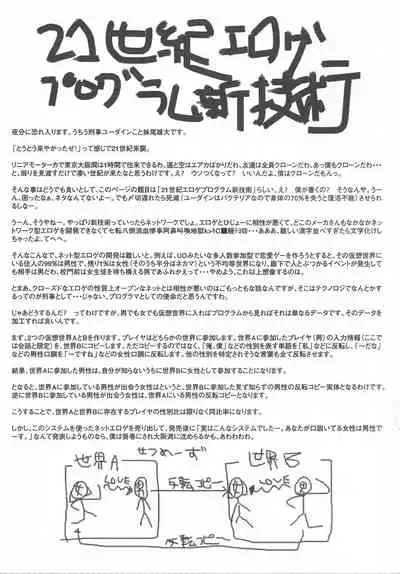 21世紀エロゲ
プログラム新技術
夜分に恐れ入ります。うちう刑事ユーダインこと妹尾雄大です。
「とうとう来やがったぜ!」って感じで21世紀来襲。
リニアモーターカで東京大阪間は1時間で往来できるわ、道と空はエアカばかりだわ、友達は全員クローンだわ、あっ僕もクローンだわ・・・
と、周りを見渡すだけで凄い世紀が来たなと思うわけです。え? ウソつくなって? いいんだよ、僕はクローンだもんっ。
そんな事はどうでも良いとして、このページの題目は「21世紀エロゲプログラム新技術」らしい。え? 僕が書くの? そうなんや。うー
ん、困ったなぁ。ネタなんてないよー。でもメ切遅れたら死滅(ユーダインはバクテリアなので身体の70%を失うと復活不能)させられ
るしなー。
うーん、そうやねー。やっぱり新技術っていったらネットワークでしょ。エロゲとひじょーに相性が悪くて、どこのメーカさんもなかなかネッ
そんなこんなで、ネット型エロゲの開発は難しいと。例えば、UOみたいな多人数参加型で恋愛ゲーを作ろうとすると、その仮想世界に
いる住人の98%は男性で、残り1%は女性(そのうち半分はネカマ)という不均等世界になり、廊下で人とぶつかるイベントが発生して
も相手は男だわ、校門前は女生徒を待ち構える男であふれかえって・・・やめよう。これ以上想像するのは。
とまぁ、クローズドなエロゲの性質上オープンなネットとは相性が悪いのはごもっともな話なんですが、そこはテクノロジでなんとかす
るってのが刑事として・・・じゃない、プログラマとしての使命だと思うんですわ。
じゃあどうするんだ? ってわけですが、男でも女でも仮想世界に入ればプログラムから見ればそれは単なるデータです。そのデータを
加工すれば良いんです。
まず、2つの仮想世界AとBを作ります。プレイヤはどちらかの世界に参加します。世界Aに参加したプレイヤ(男)の入力情報(ここで
は会話と限定)を、世界Bにコピーします。ただコピーするのではなく、「俺、僕」などの性別を表す単語を「私」などに反転し、「~だな」
などの男性口調を「~ですね」などの女性口調に反転します。他の性別を特定されそうな言葉も全て反転させます。
結果、世界Aに参加した男性は、自分が知らないうちにBの世界に女性として参加することになります。
となると、世界Aに参加している男性が出会う女性はというと、世界Bに参加した見ず知らずの男性の反転コピー実体となるわけです。
逆に世界Bに参加している男性が出会う女性は、世界Aにいる男性の反転コピーとなります。
こうすることで、世界Aと世界Bに存在するプレイヤの性別比は限りなく同比率になります。
しかし、このシステムを使ったネットエロゲを売り出し、発売後に「実はこんなシステムでしたー。あなたが口説いてる女性は男性で
ーす。」なんて発表しようものなら、僕は簀巻にされ大阪湾に沈められるかも。あわわわわ。
せつめーず
世界A
世界B
女 LOVE 男
反転コピー
女 LOVE 男
反転コピー